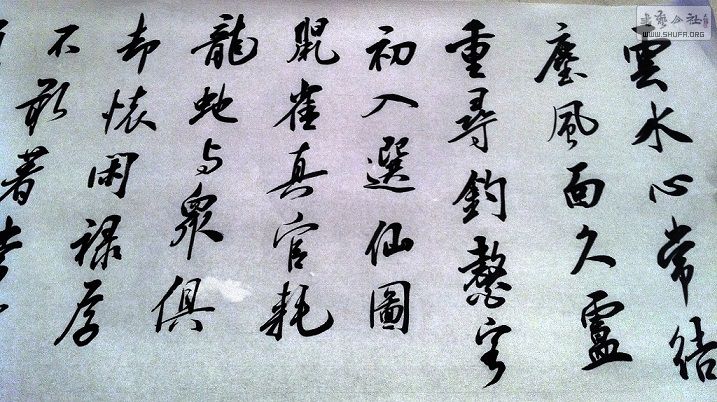 雲水心常結
塵風面久盧
重尋釣鼇客
初入選仙圖
鼠雀真官耗
龍虵与衆俱
却懷閑禄厚
不敢著
書藝公社
WWW.SHUFA.ORG